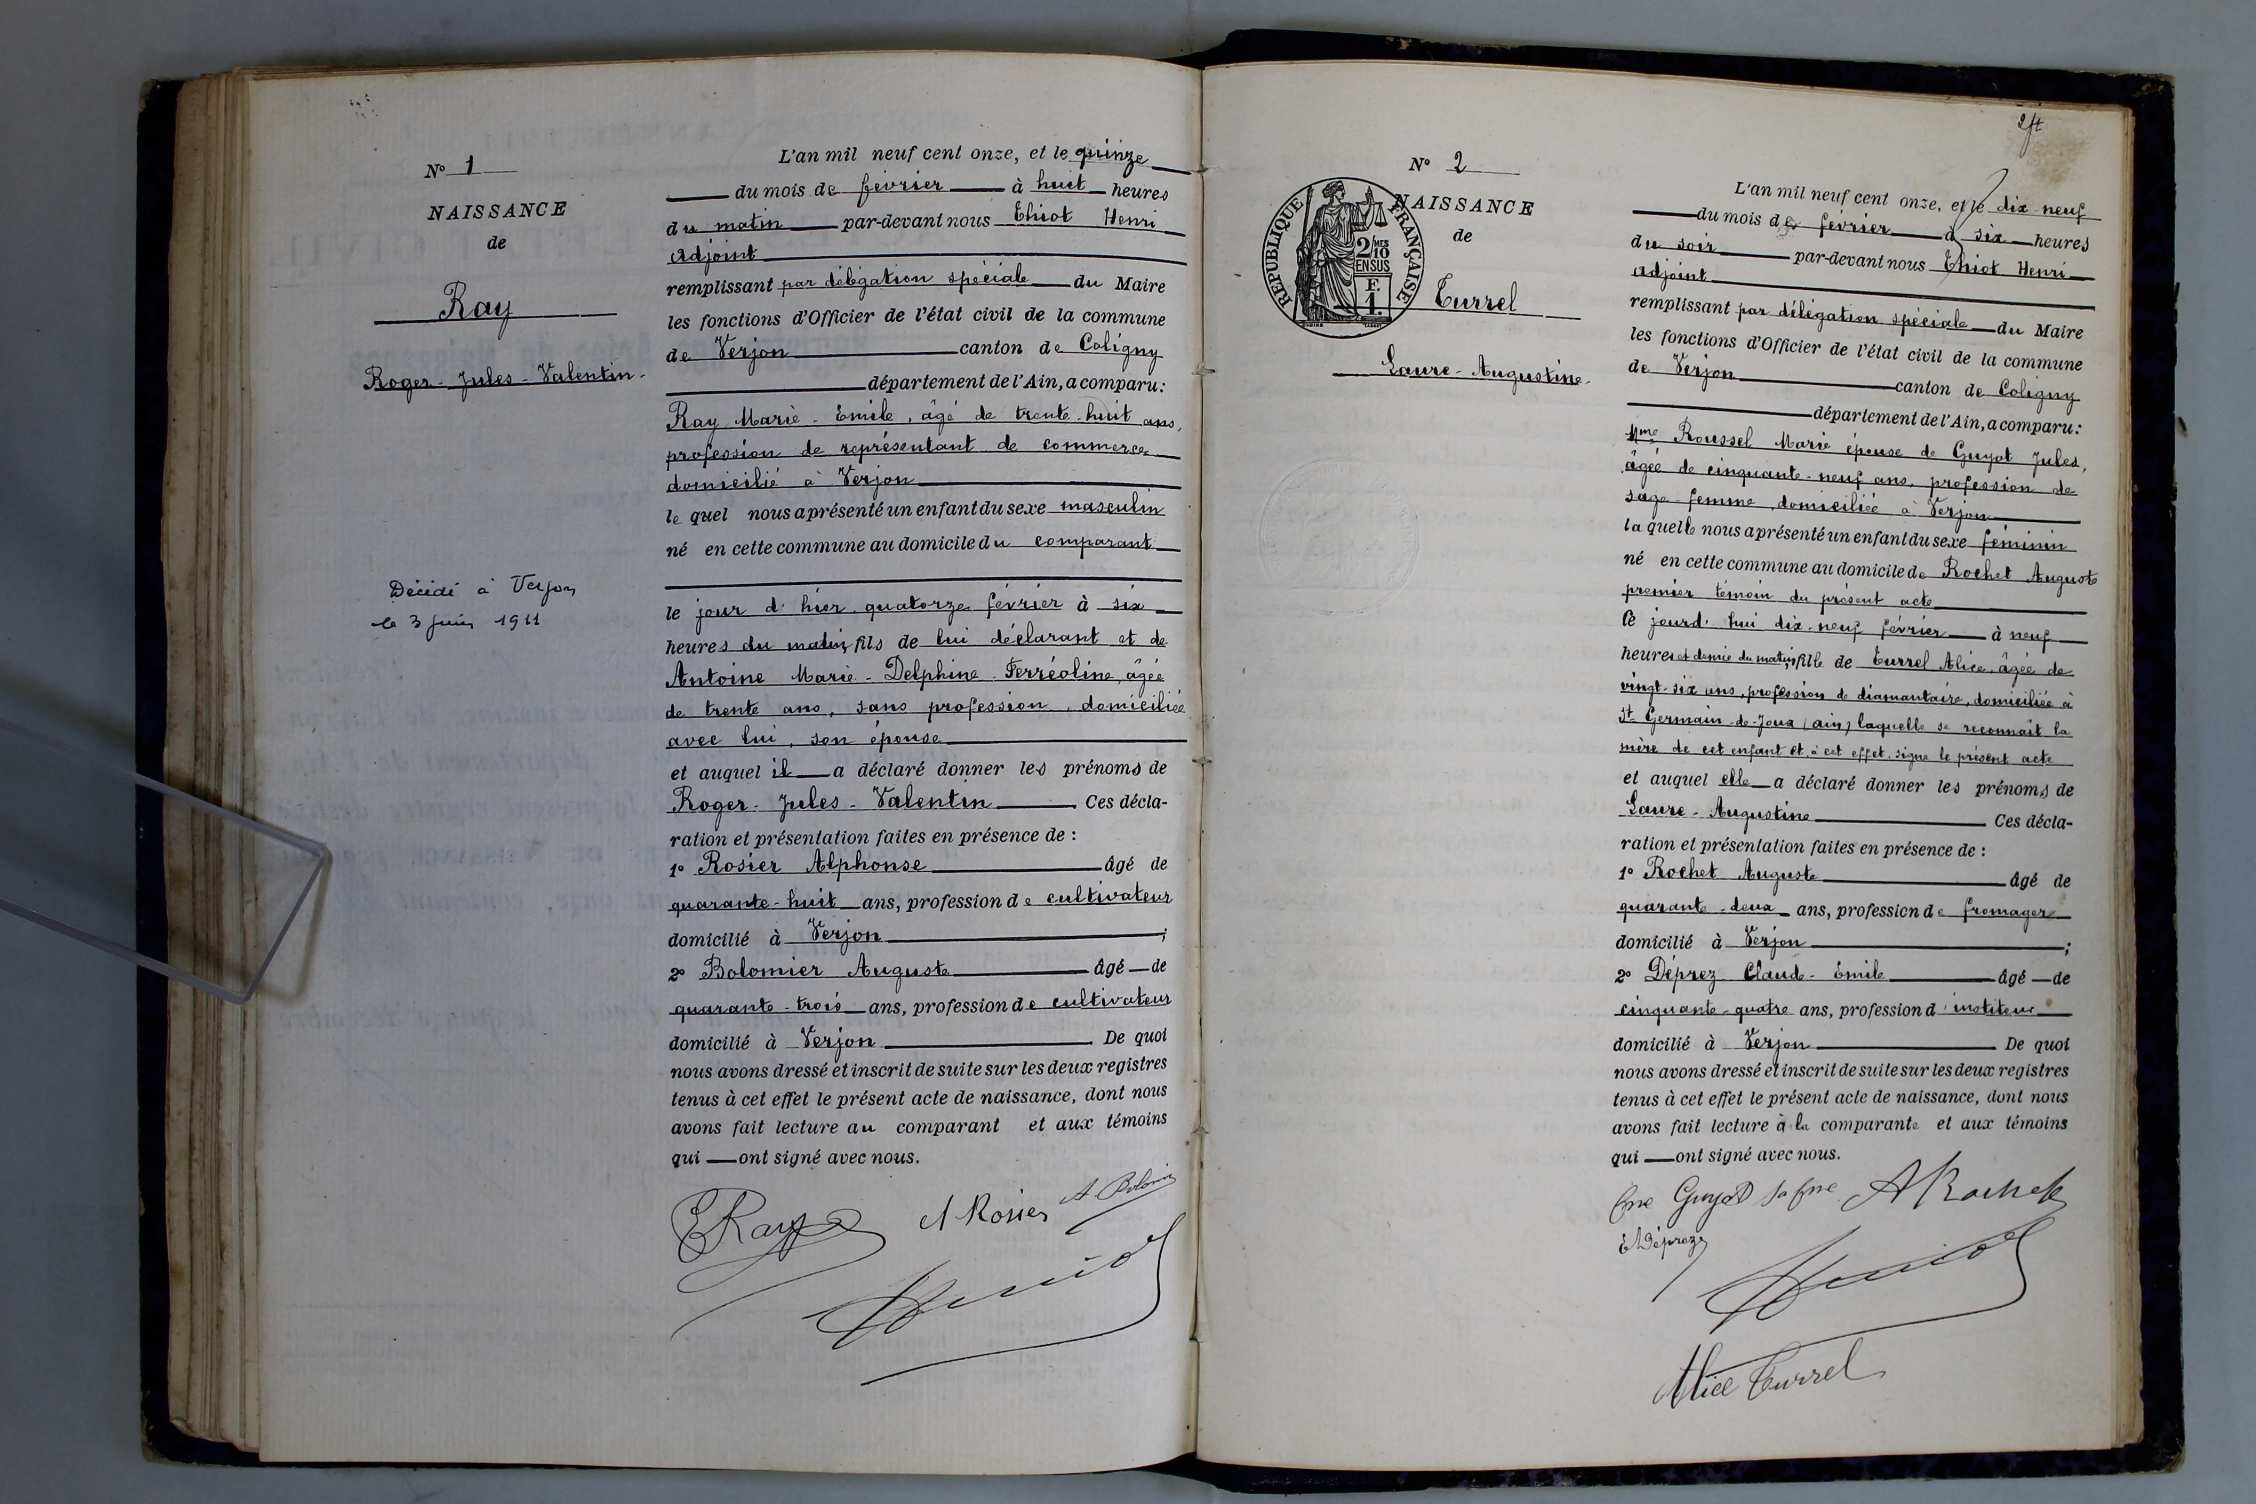 N° 1
NAISSANCE
de
Ray
Roger-Jules-Valentin-
Décédé à Verjon
le 3 juin 1911
L'an mil neuf cent onze, et le quinze
du mois de février à huit heures
du matin par-devant nous Thiot Henri
Adjoint
remplissant par délégation spéciale du Maire
les fonctions d'Officier de l'état civil de la commune
de Verjon canton de Coligny
département de l'Ain, a comparu :
Ray Marie-Emile, âgé de trente-huit ans,
profession de représentant de commerce
domicilié à Verjon
le quel nous a présenté un enfant du sexe masculin
né en cette commune au domicile du comparant
le jour d'hier quatorze février à six
heures du matin, fils de lui déclarant et de
Antoine Marie-Delphine-Ferréoline, âgée
de trente ans, sans profession, domiciliée
avec lui, son épouse
et auquel il a déclaré donner les prénoms de
Roger-Jules-Valentin Ces décla-
ration et présentation faites en présence de :
1° Rosier Alphonse âgé de
quarante-huit ans, profession de cultivateur
domicilié à Verjon ;
2° Bolomier Auguste âgé de
quarante-trois ans, profession de cultivateur
domicilié à Verjon De quoi
nous avons dressé et inscrit de suite sur les deux registres
tenus à cet effet le présent acte de naissance, dont nous
avons fait lecture au comparant et aux témoins
qui ont signé avec nous.
E Ray A Rosier A. Bolomier
N° 2
NAISSANCE
de
REPUBLIQUE FRANÇAISE
2/MES
10
EN SUS
F.
1.
Turrel
Laure-Augustine-
L'an mil neuf cent onze, et le dix-neuf
du mois de février à six heures
du soir par-devant nous Thiot Henri
Adjoint
remplissant par délégation spéciale du Maire
les fonctions d'Officier de l'état civil de la commune
de Verjon canton de Coligny
département de l'Ain, a comparu :
Mme Roussel Marie épouse de Guyot Jules,
âgée de cinquante-neuf ans, profession de
sage-femme, domiciliée à Verjon
la quelle nous a présenté un enfant du sexe féminin
né en cette commune au domicile de Rochet Auguste
premier témoin du présent acte
ce jourd'hui dix-neuf février à neuf
heures et demie du matin, fille de Turrel Alice, âgée de
vingt-six ans, profession de diamantaire, domiciliée à
St Germain-de-Joux (ain) laquelle se reconnaît la
mère de cet enfant et, à cet effet, signe le présent acte
et auquel elle a déclaré donner les prénoms de
Laure-Augustine Ces décla-
ration et présentation faites en présence de :
1° Rochet Auguste âgé de
quarante-deux ans, profession de fromager
domicilié à Verjon ;
2° Déprez Claude-Emile âgé de
cinquante-quatre ans, profession d'instituteur
domicilié à Verjon De quoi
nous avons dressé et inscrit de suite sur les deux registres
tenus à cet effet le présent acte de naissance, dont nous
avons fait lecture à la comparante et aux témoins
qui ont signé avec nous.
Guyot sa fme A Rochet
E Déprez
Alice Turrel